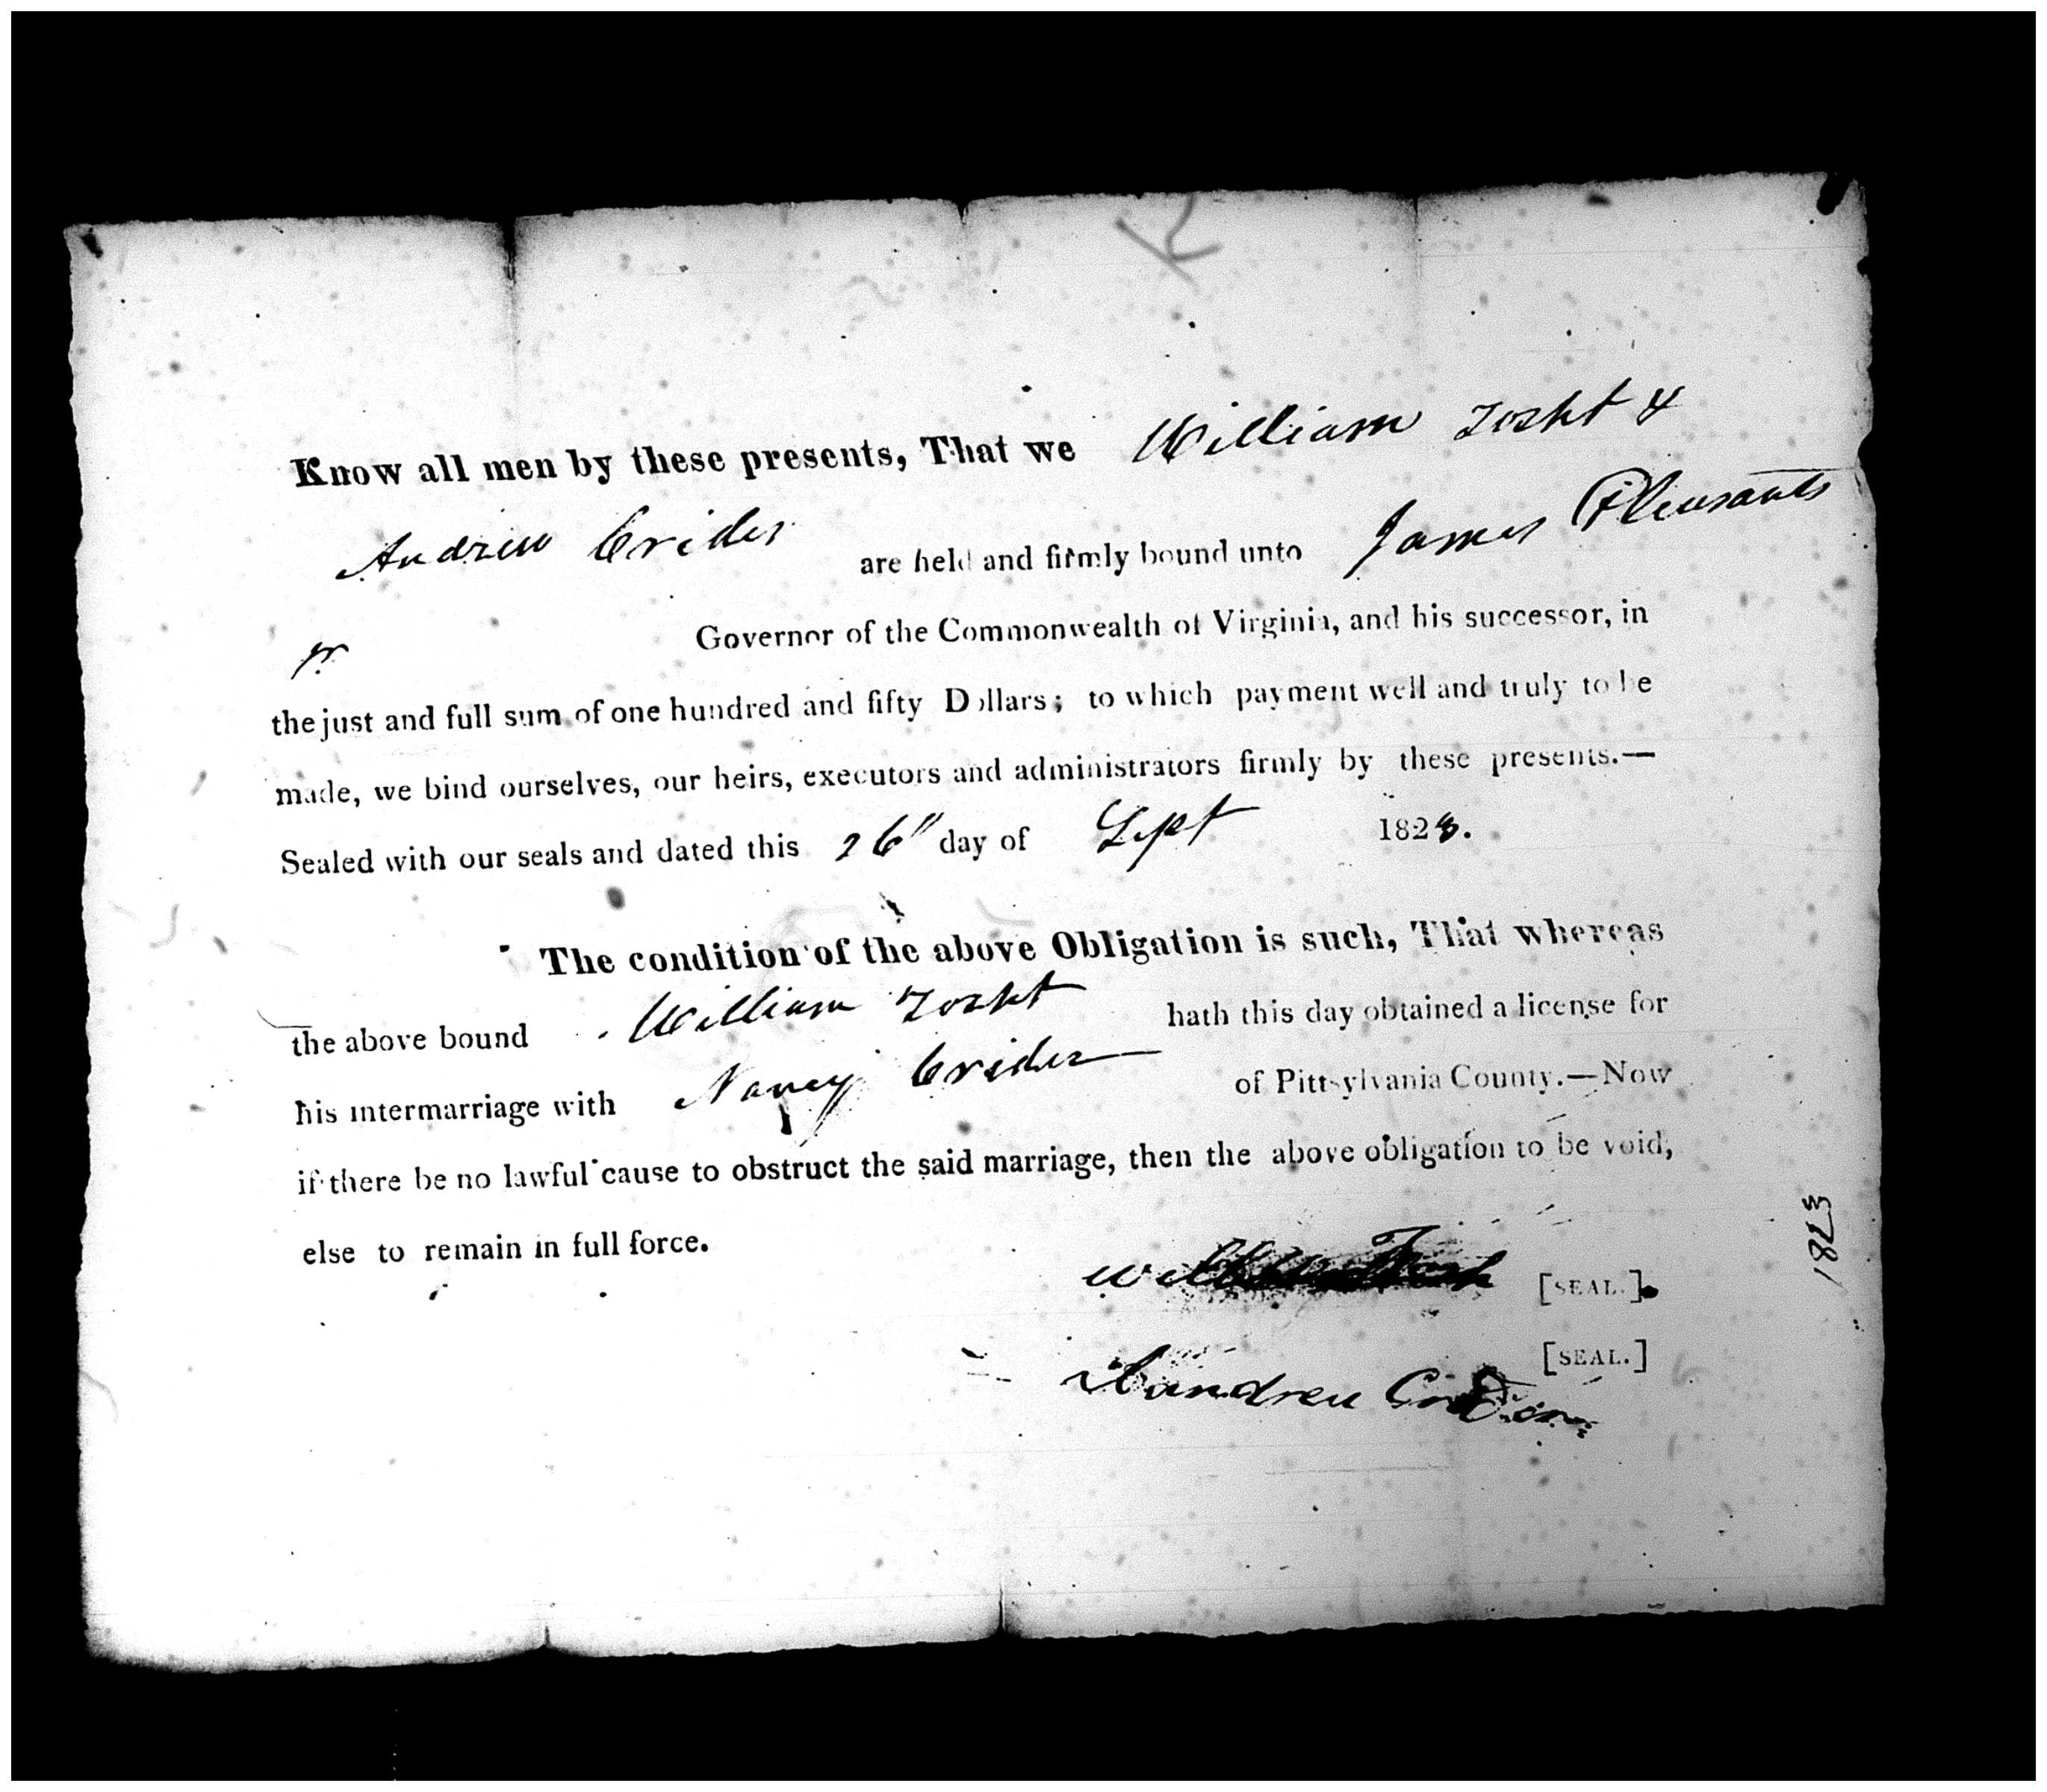 K
Know all men by these presents, That we William Tosht &
Andrew Crider are held and firmly bound unto James Pleasants
Jr. Governor of the Commonwealth of Virginia, and his successor, in
the just and full sum of one hundred and fifty Dollars; to which payment well and truly to be
made, we bind ourselves, our heirs, executors and administrators firmly by these presents.—
Sealed with our seals and dated this 26" day of Sept 1823.
The condition of the above Obligation is such, That whereas
the above bound William Tosht hath this day obtained a license for
his intermarriage with Nancy Crider of Pittsylvania County.—Now
if there be no lawful cause to obstruct the said marriage, then the above obligation to be void,
else to remain in full force.
[SEAL.]
[SEAL.]
Andrew
1823